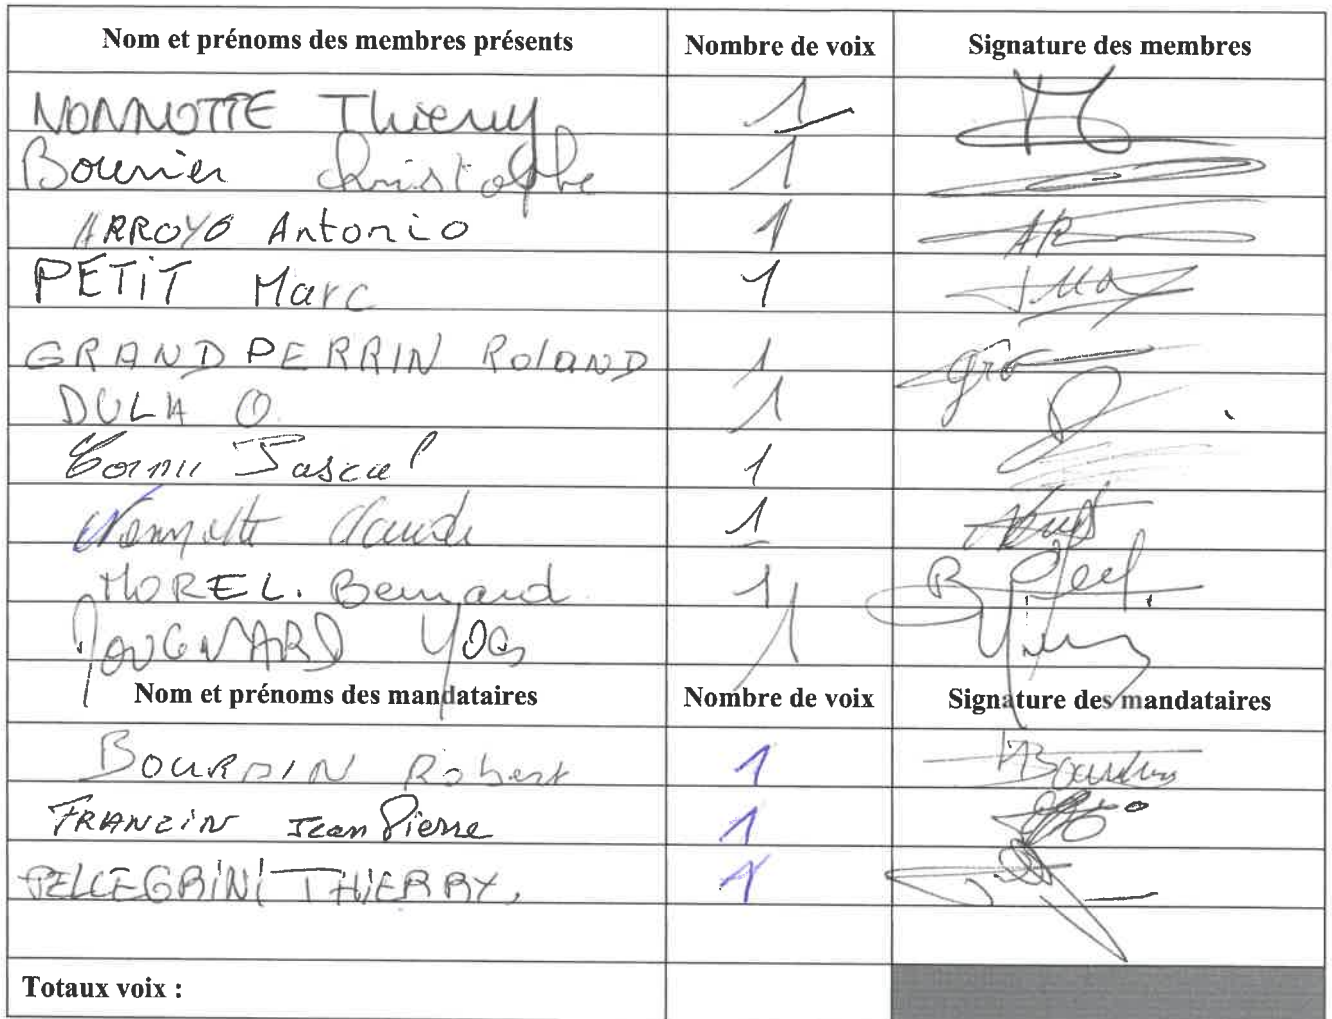 Nom et prénoms des membres présents Nombre de voix Signature des membres
NONNOTTE Thierry 1
Bouvier Christophe 1
ARROYO Antonio 1
PETIT Marc 1
GRANDPERRIN Roland 1
DULA O. 1
Cornu Pascal 1
Nonnotte Claude 1
MOREL. Bernard 1
JOUGNARD 1
Nom et prénoms des mandataires Nombre de voix Signature des mandataires
BOURDIN Robert 1 Bourdin
FRANZIN Jean Pierre 1
PELLEGRINI THIERRY. 1
Totaux voix :